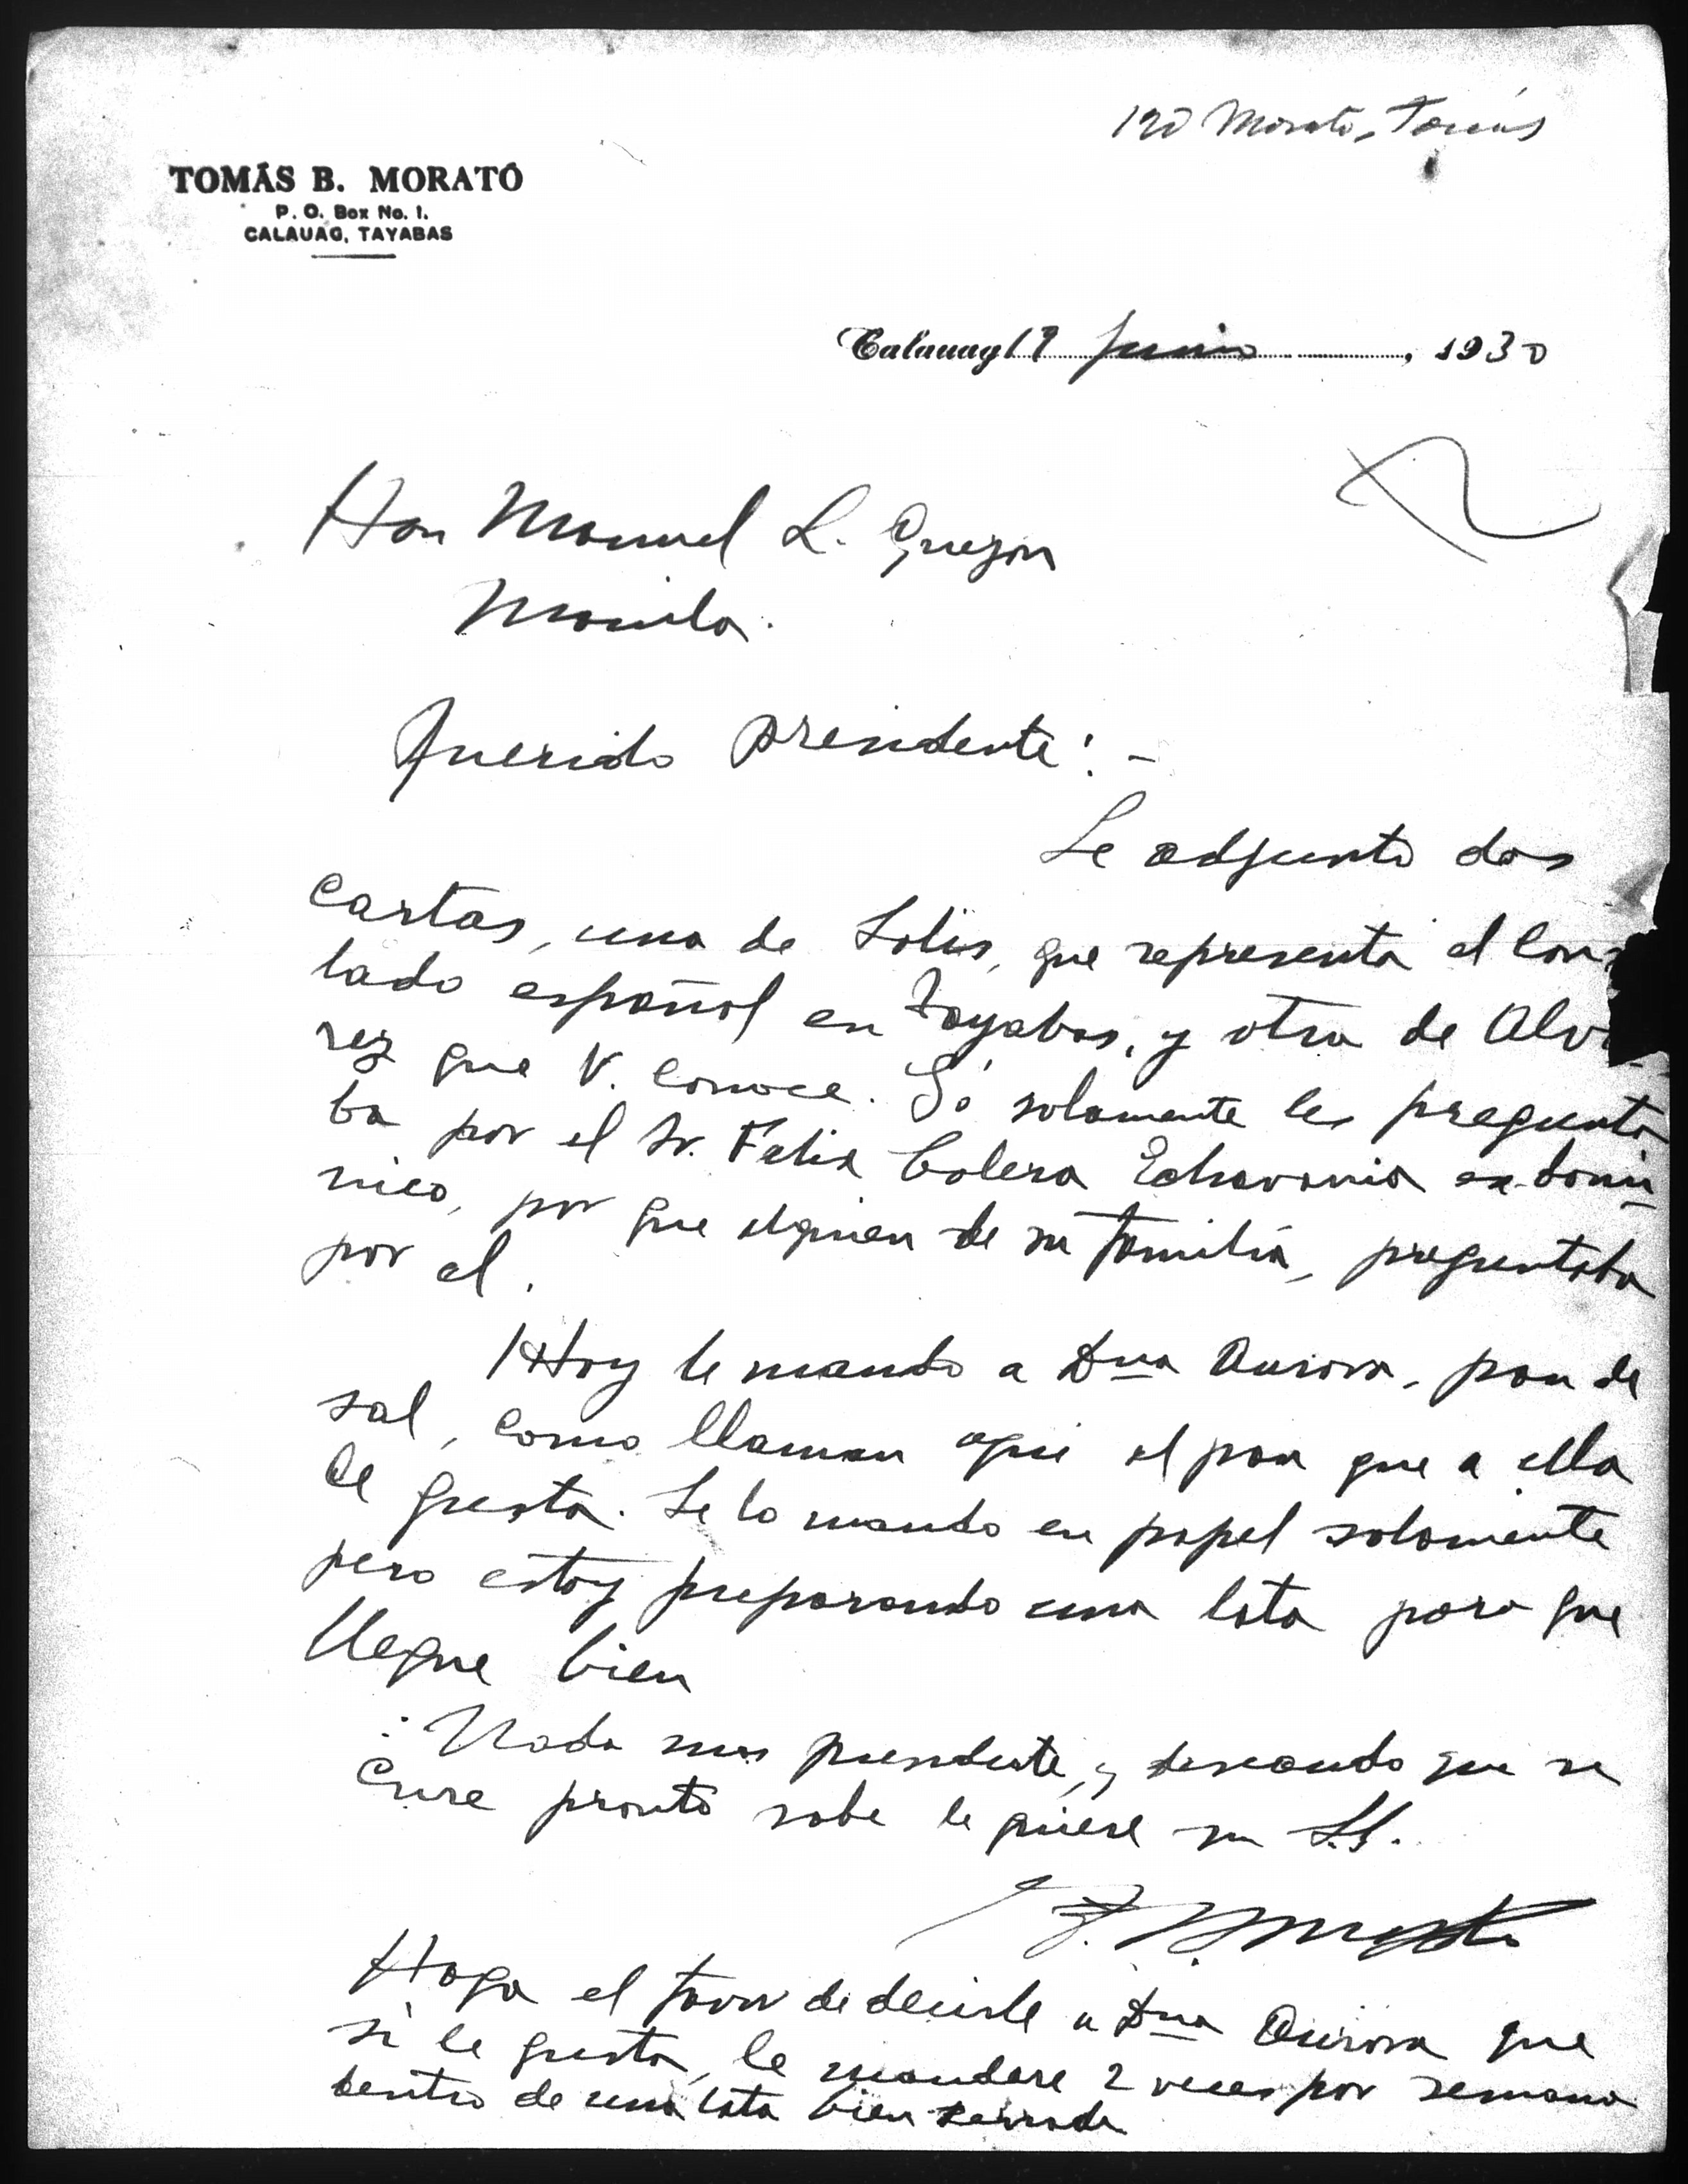 190 Morato, Tomás
TOMÁS B. MORATÓ
P. O. Box No. 1.
CALAUAG, TAYABAS
Calauag 19 Junio, 1930
Hon Manuel L. Quezon
Manila.
Querido presidente: -
Le adjunto dos
cartas, una de Solis, que representa el Con
lado español en Tayabas, y otra de Alva
rez que V. conoce. Yó solamente les pregunta
ba por el Sr. Felix Colera Echavarria ex-domi
nico, por que alguien de su familia, preguntaba
por el.
Hoy le mando a Dna Aurora, pan de
sal, como llaman aqui el pan que a ella
le gusta. Se lo mando en papel solamente
pero estoy preparando una lata para que
llegue bien
Nada mas presidente, y deseando que se
cure pronto sabe le quiere su
T. B. Morató
Haga el favor de decirle a Dna Aurora que
si le gusta, le mandare 2 veces por semana
dentro de una lata bien serrada